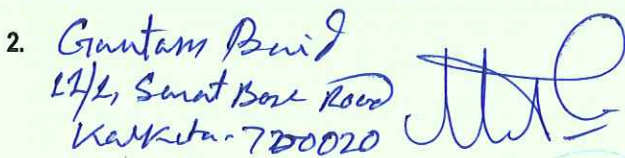 2. Gautam Baid
Sarat Bose Road
Kalkata-700020